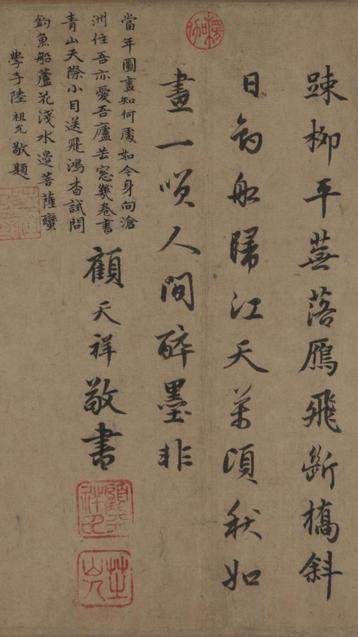 疎柳平蕪落鴈飛斷橋斜
日釣船歸江天萬頃秋如
畫一嘆人間醉墨非
顧天祥敬書
當年圖畫知何處如今身向滄
洲住吾亦愛吾廬芸窓幾卷書
青山天際小目送飛鴻杳試問
釣魚船蘆花淺水邊菩薩蠻
學子陸祖允敬題